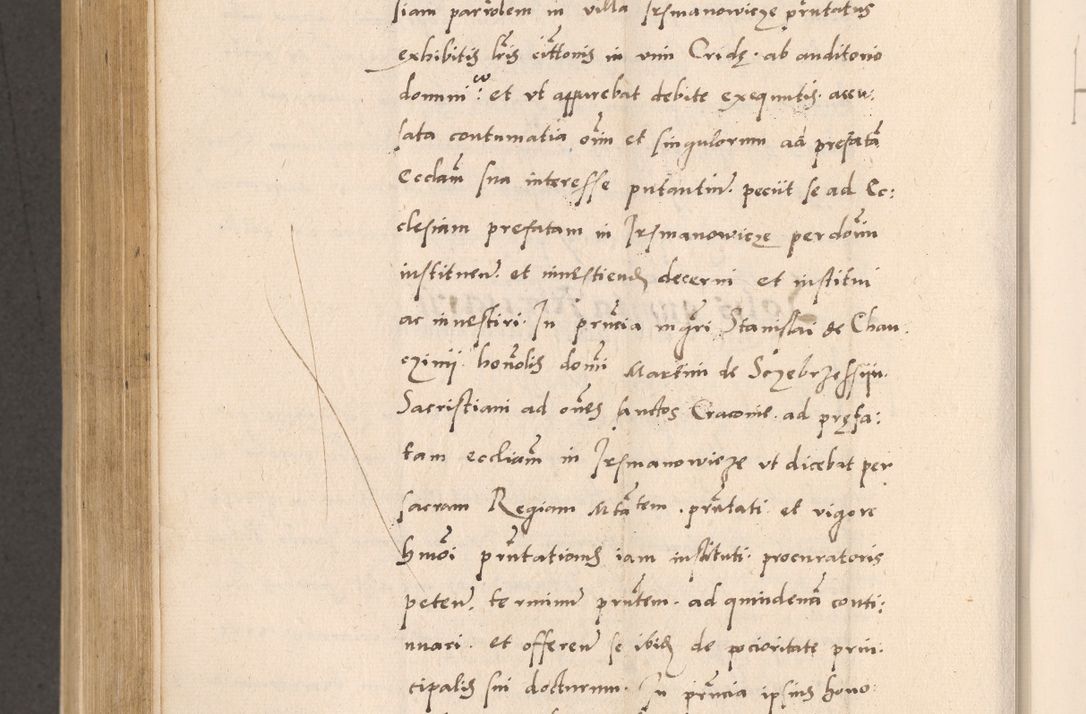 siam parrolem in villa Irsmanowicze prñtatus
exhibitis lr̃is citt̃onis in vim Cridę. ab auditorio
domini et vt apparebat debite exequutis. accu:
sata contumatia oĩm et singulorum ad prefatã
Ecclãm sua interesse putantiũ. peciit se ad Ec:
clesiam prefatam in Irsmanowicze per dom̃
instituen̄. et inuestiend decerni et institui
ac inuestiri. In prñcia mgr̃i Stanislai de Chan
czinij. hon̄olis dom̃i Martini de Sczebrzessyn.
Sacristiani ad oẽs sanctos Cracouie. ad pręfa:
tam eccliam̃ in Irsmanowicze vt dicebat per
sacram Regiam Mtãtem. prñtati et vigore
hm̃oi prñtationis iam instituti. procuratoris
peteñ. terminũ prñtem. ad quindenã conti:
nuari. et offereñ se ibid de pocioritate prin:
cipalis sui docturum. In prñcia ipsius hono: